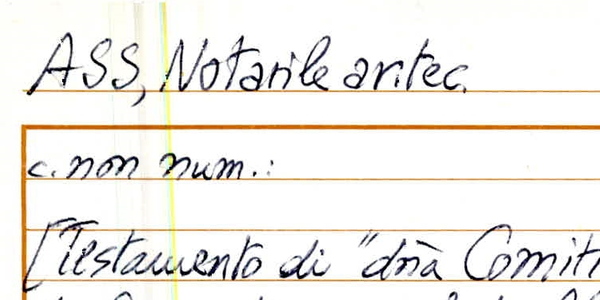 ASS, Notarile antec.
c. non num.:
[Testamento di "dnā Comiti